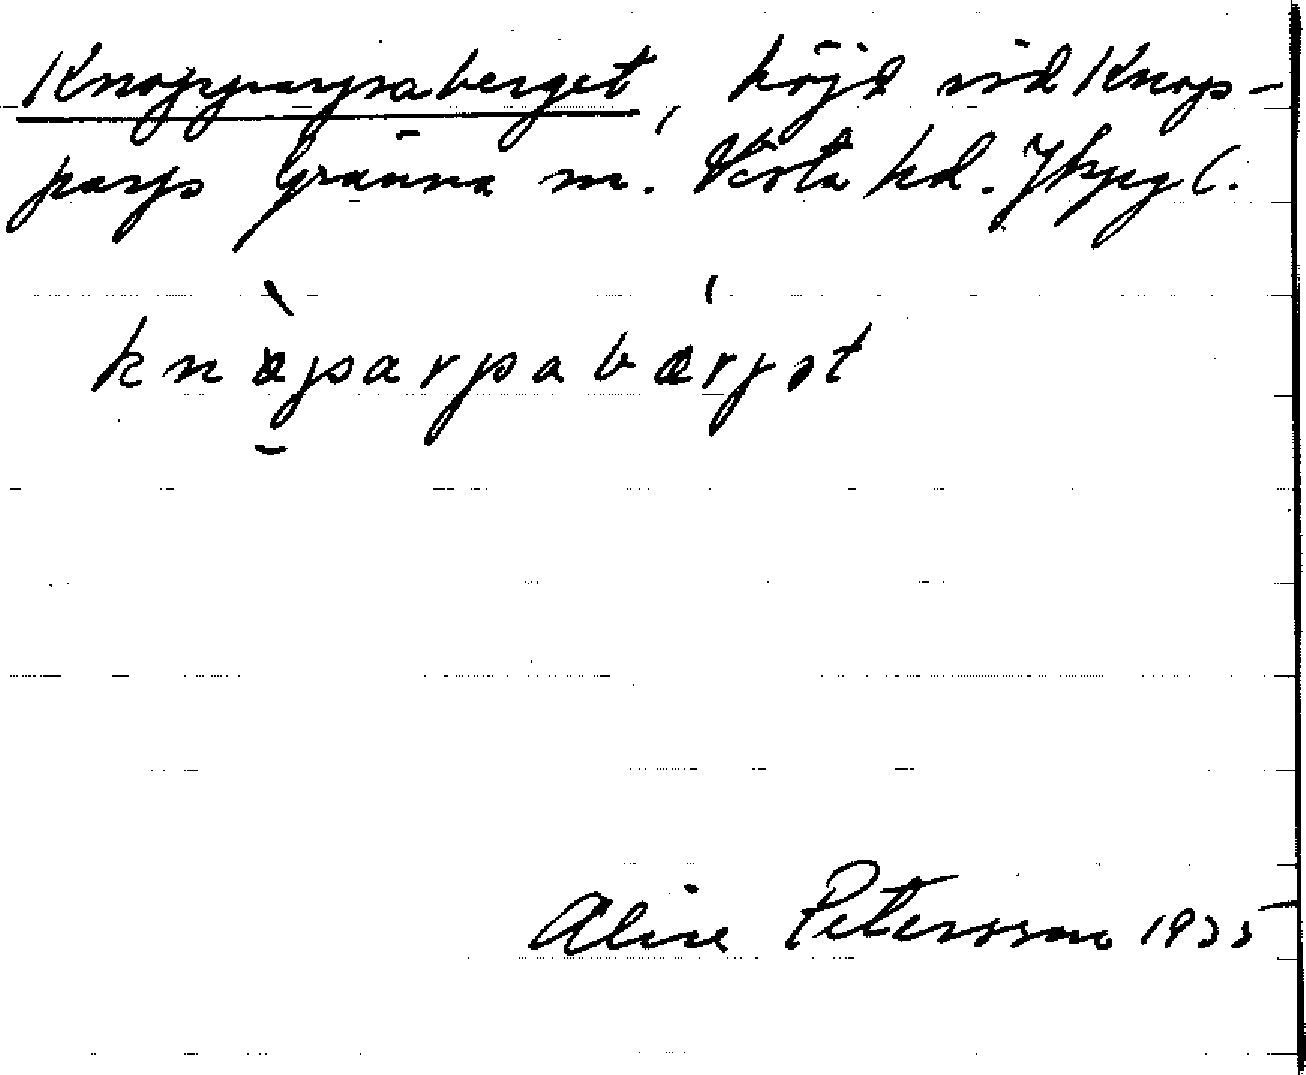 Knopparpsaberget, höjd vid Knop-
parp Gränna sn. Vista hd. Jkpg l.
knɵ̀parpabǽrjət
Alice Petersson 1935